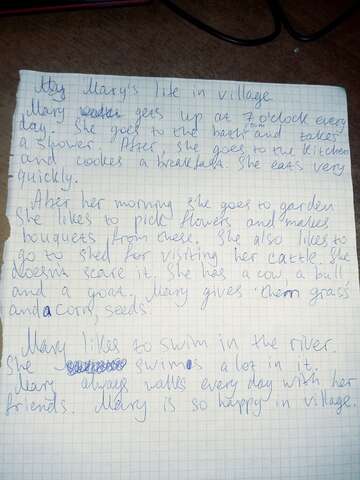 My Mary's life in village
Mary gets up at 7 o'clock every
day. She goes to the bathroom and takes
a shower. After, she goes to the kitchen
and cookes a breakfast. She eats very
quickly.
After her morning she goes to garden
She likes to pick flowers and makes
bouquets from these. She also likes to
go to shed for visiting her cattle. She
doesn't scare it. She has a cow, a bull,
and a goat. Mary gives them grass
and a corn, seeds.
Mary likes to swim in the river.
She swims a lot in it.
Mary always walks every day with her
friends. Mary is so happy in village.